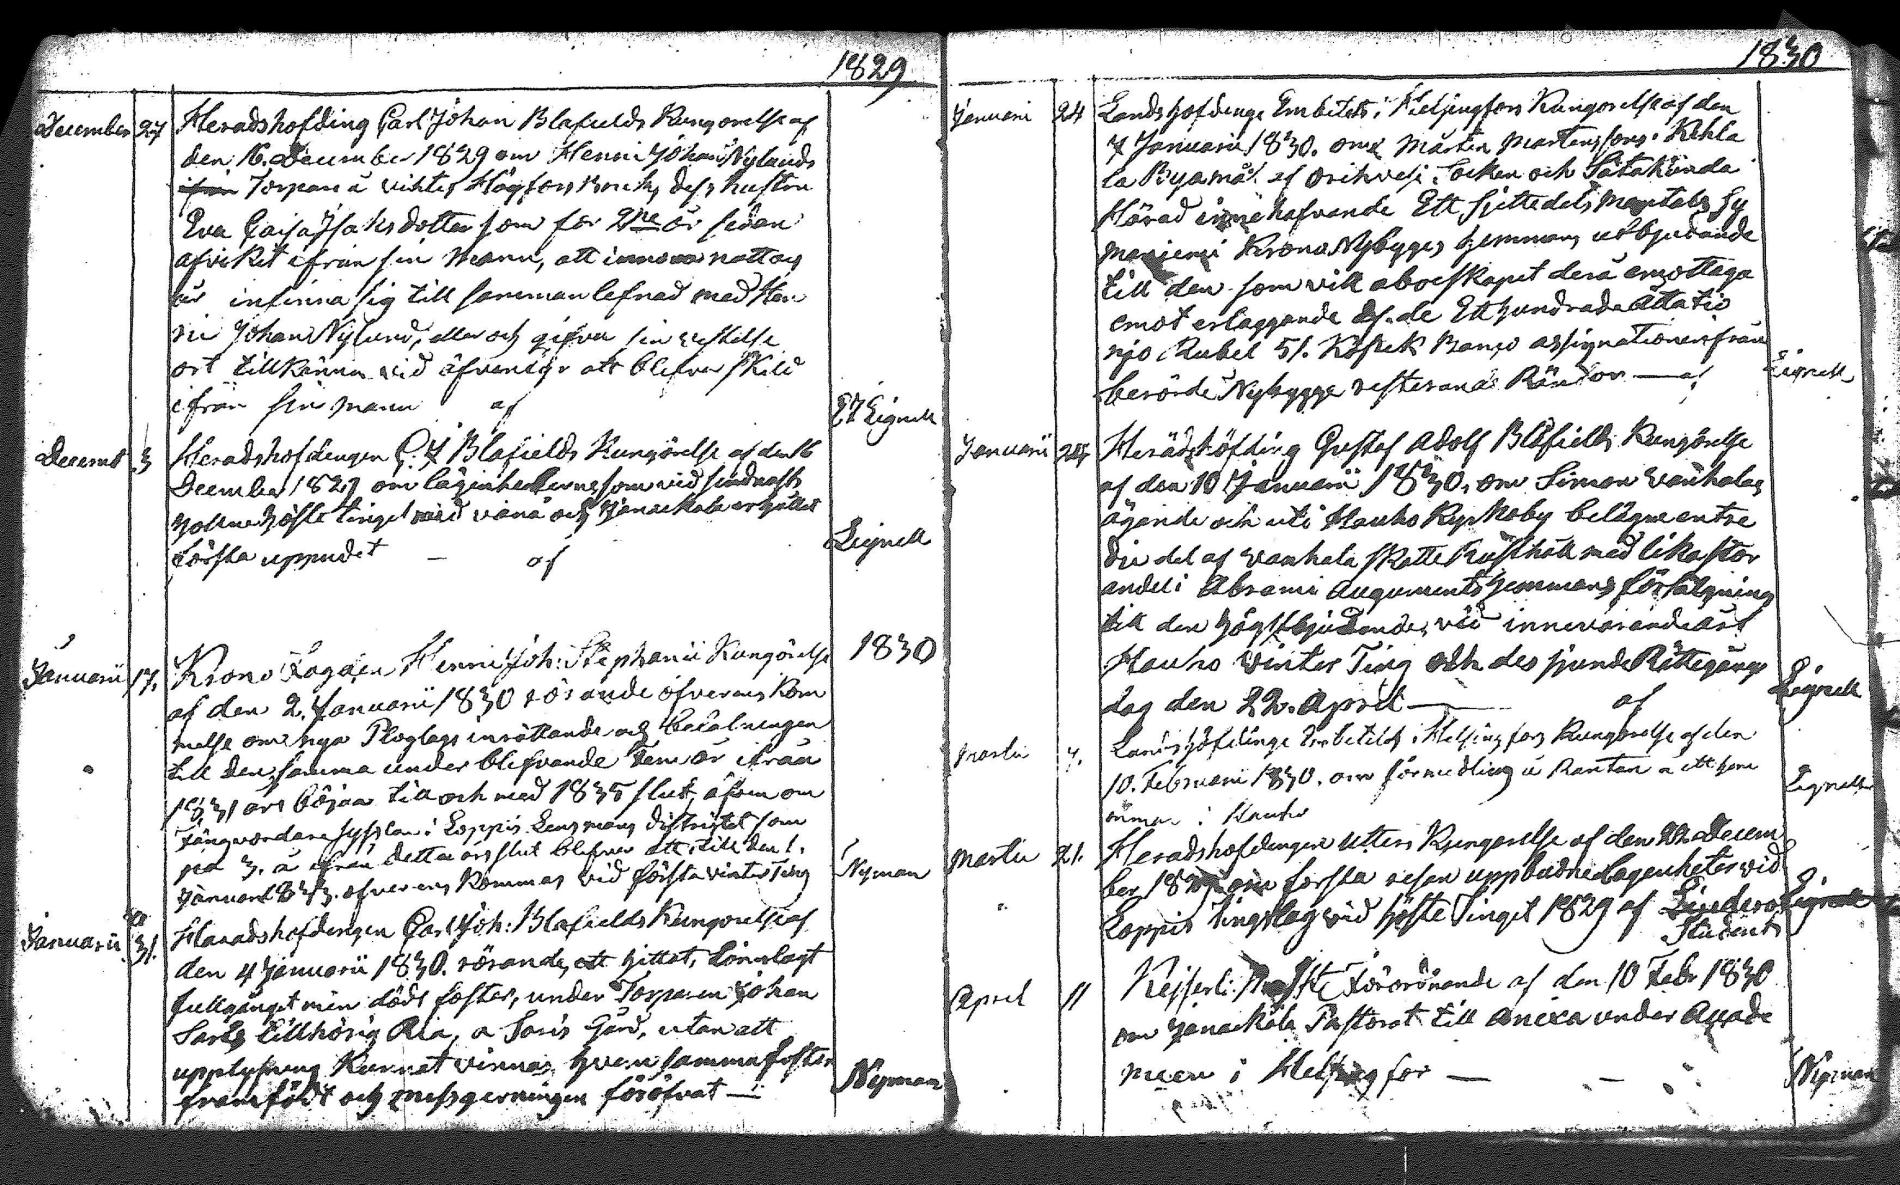 1829
December 27 Heradshofding Carl Johan Blafields Kungorelse af
den 16. December 1829 om Henri Johan Nylunds
ifrån Torpare å viktis Högfors Bruks dess hustru
Eva Caisa Isaksdotter som för 2ne år sedan
afvikit ifrån sin Mann, att innom natt og
år infinna sig till sammanlefnad med Hen
ric Johan Nylund, eller och gifva sin vistelse
ort tillkänna vid äfventyr att blifva skild
ifrån sin mann af
EJ Eignell
Decemb 3 Heradshofdingen C. J Blafields Kungörelse af den 16
December 1829 om lägenheterne som vid sindnasth
hollne Höste tinget med vånå och Janackala erhållit
första uppudet — af
Eignell
1830
Januarii 17. Krono Fogden Henric Joh: Stephanii Kungörelse
af den 2. Januarii 1830 rörande öfverens kom
melse om nya Ploglags inrättande och betalningen
till den samma under blifvande Fem år ifrån
1831 års början till och med 1835 slut, äfven om
Fångvordare sysslan i Loppis Lensmans district som
på 3. å ifrån detta års slut blifver att till den 1.
Januari 1833. öfverens kommas vid första vinter Ting
Nyman
Januarii 31. Haradshofdingen Carl Joh: Blafields Kungorelse af
den 4 Januarii 1830. rörande, ett hittat, Lönnlagt
fullgånget men dödt foster, under Torparen Johan
Saris tillhörig Ria, a Saris Gård, utan att
upplysning Kunnat vinnas, hvem samma foster
framfödt och missgerningen föröfvat —
Nyman
1830
Januari 24 Landshofdinge Embetets i Helsingfors Kungorelse af den
7 Januarii 1830. om Mårten Martenssons Kihla
la Byamål af Orihvesi Socken och Satakunda
Härad innehafvande Ett siettedels Mantals Hy
Krono Nybygges hemman, utbjudande
till den som vill aboeskapet derå emottaga
emot erlaggande af de Ett hundrade åttatio
nio Rubel 51. Kopek Banco assignationer från
berörde Nybygge resterande Räntor — af
Eignell
Januarii 24 Heradshöfding Gustaf Adolf Blåfields Kungörelse
af den 10 Januarii 1830, om Simon Vanhalas
ägande och uti Hauho Kyrkoby belägne entre
die del af Vanhala skatte Rusthåll med lika stor
andel i Abrami Augments hemmans försälgning
till den högstbjudande, vid innevarande års
Hauho Winter Ting och des sjunde Rättegångs
dag den 22. April — af
Eignell
Martii 7. Landshöfdinge Embetets i Helsingfors Kungorelse af den
10. Februarii 1830. om förmedling å Rantan å ett hem
man i Hauho
Eignell
Martii 21. Heradshofdingens Utters Kungorelse af den 22 Decem
ber 1829 om forsta resan uppbudne Lagenheter vid
Loppis Tingslag vid höste Tinget 1829 af Linderos Eignell
Students
April 11 Kejserl. Förordnande af den 10 Febr 1830
om Janackala Pastorat till Anexa under Acade
mien i Helsingfor —
Nyman